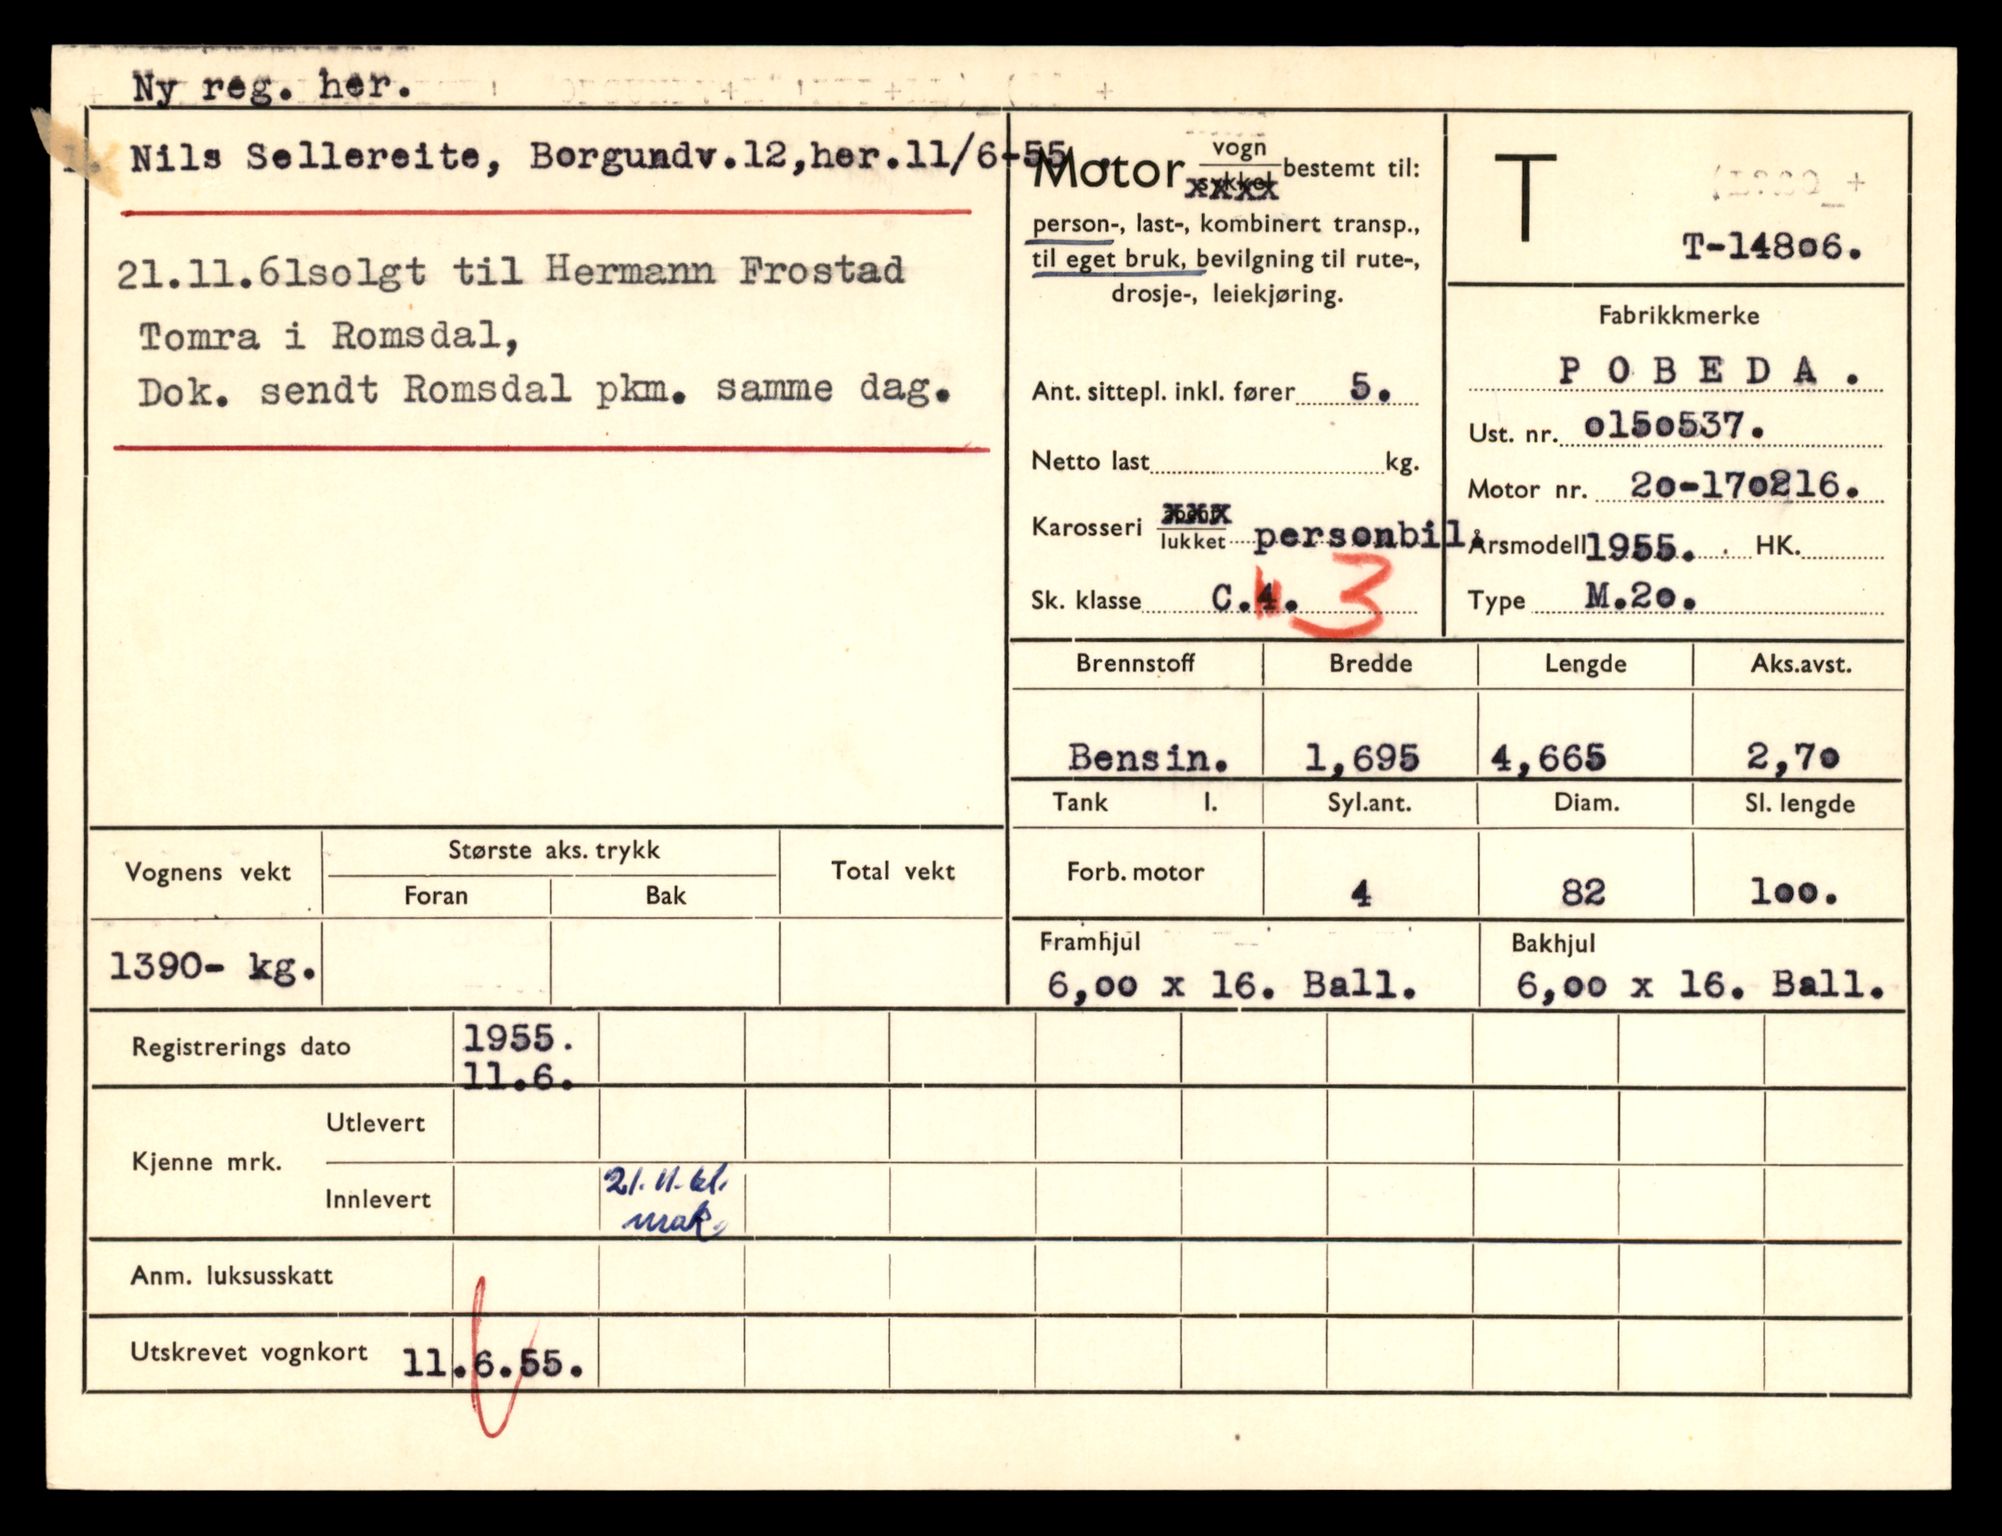 Ny reg. her.
1. Nils Sellereite, Borgundv.12,her.11/6-55.
21.11.61solgt til Hermann Frostad
Tomra i Romsdal,
Dok. sendt Romsdal pkm. samme dag.
Motor vogn bestemt til:
sykkel
person-, last-, kombinert transp.,
til eget bruk, bevilgning til rute-,
drosje-, leiekjøring.
Ant. sittepl. inkl. fører 5.
Netto last kg.
Karosseri åpent
lukket personbil.
Sk. klasse C.4. 3
T
T-14806.
Fabrikkmerke
P O B E D A .
Ust. nr. 0150537.
Motor nr. 20-170216.
Årsmodell 1955. HK.
Type M.20.
Brennstoff Bredde Lengde Aks.avst.
Bensin. 1,695 4,665 2,70
Tank l. Syl.ant. Diam. Sl. lengde
Forb. motor 4 82 100.
Framhjul Bakhjul
6,00 x 16. Ball. 6,00 x 16. Ball.
Vognens vekt Største aks. trykk Total vekt
Foran Bak
1390- kg.
Registrerings dato 1955.
11.6.
Kjenne mrk. Utlevert
Innlevert 21.11.61.
mak.
Anm. luksusskatt
Utskrevet vognkort 11.6.55.